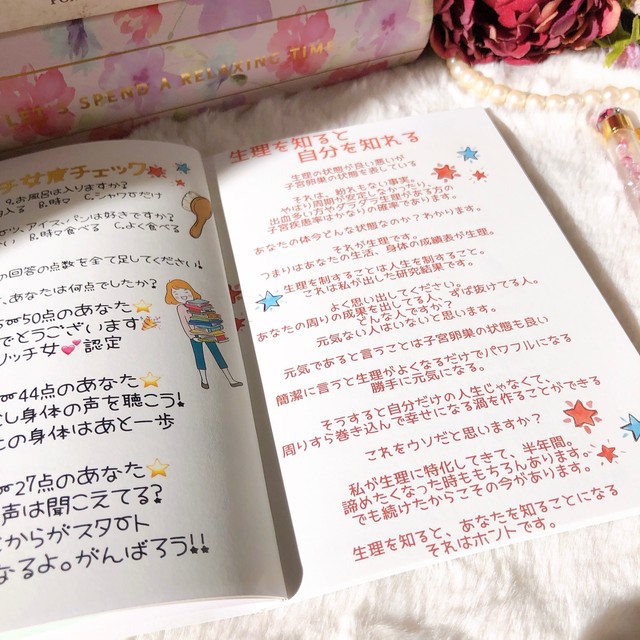 LET'S SPEND A RELAXING TIME
チ女★チェック
9,お風呂は入りますか?
入る B.時々 C.シャワーだけ
ツ、アイス、パンは好きですか?
B.時々食べる C.よく食べる
の回答の点数を全て足してください!
、あなたは何点でしたか?
50点のあなた
でとうございます
ノッチ女💕認定
44点のあなた
し身体の声を聴こう!
の身体はあと一歩
27点のあなた
声は聞こえてる?
からがスタート
なるよ。がんばろう!!
生理を知ると
自分を知れる
生理の状態が良い悪いが
子宮卵巣の状態を表している
それは、紛れもない事実。
やはり周期が安定しなかったり、
出血多い方やダラダラ生理がある方の
子宮疾患率はかなりの確率であります。
あなたの体今どんな状態なのか?わかります。
それが生理です。
つまりはあなたの生活、身体の成績表が生理。
生理を制することは人生を制すること。
これは私が出した研究結果です。
よく思い出してください。
あなたの周りの成果を出してる人、ずば抜けてる人。
どんな人ですか?
元気ない人はいないと思います。
元気であると言うことは子宮卵巣の状態も良い
簡潔に言うと生理がよくなるだけでパワフルになる
勝手に元気になる。
そうすると自分だけの人生じゃなくて、
周りすら巻き込んで幸せになる渦を作ることができる
これをウソだと思いますか?
私が生理に特化してきて、半年間。
諦めたくなった時ももちろんあります。
でも続けたからこその今があります。
生理を知ると、あなたを知ることになる
それはホントです。